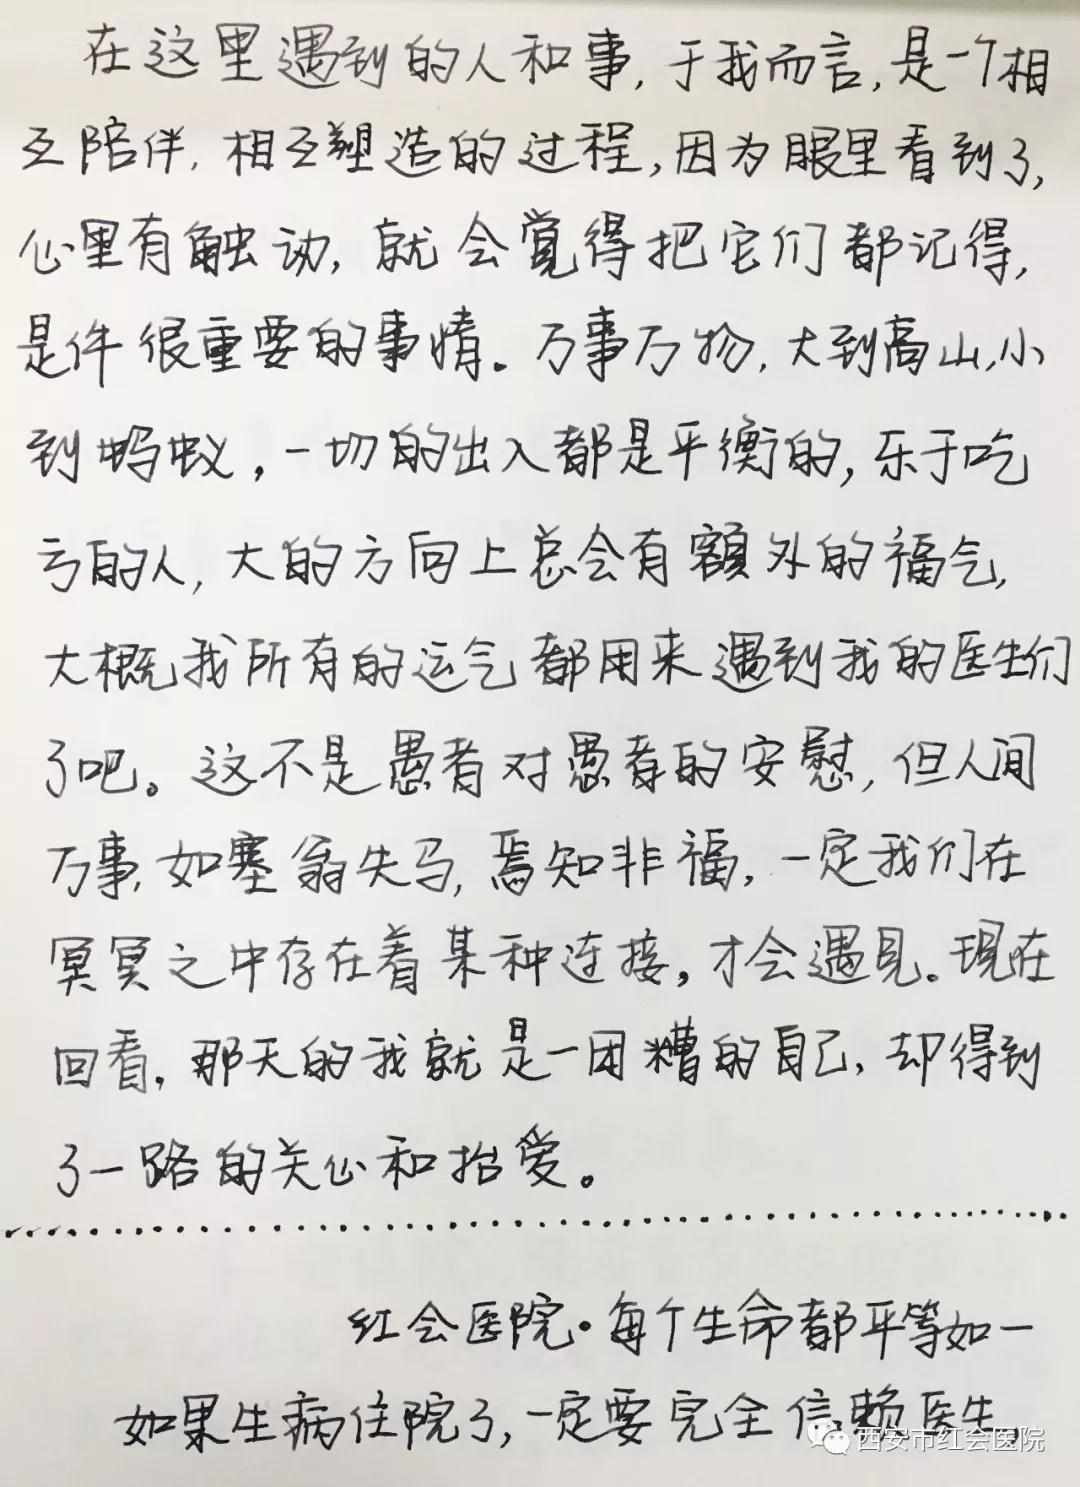 在这里遇到的人和事,于我而言,是一个相
互陪伴,相互塑造的过程,因为眼里看到了,
心里有触动,就会觉得把它们都记得,
是件很重要的事情。万事万物,大到高山,小
到蚂蚁,一切的出入都是平衡的,乐于吃
亏的人,大的方向上总会有额外的福气,
大概我所有的运气都用来遇到我的医生们
了吧。这不是愚者对愚者的安慰,但人间
万事,如塞翁失马,焉知非福,一定我们在
冥冥之中存在着某种连接,才会遇见。现在
回看,那天的我就是一团糟的自己,却得到
了一路的关心和抬爱。
红会医院·每个生命都平等如一
如果生病住院了,一定要完全信赖医生。
西安市红会医院